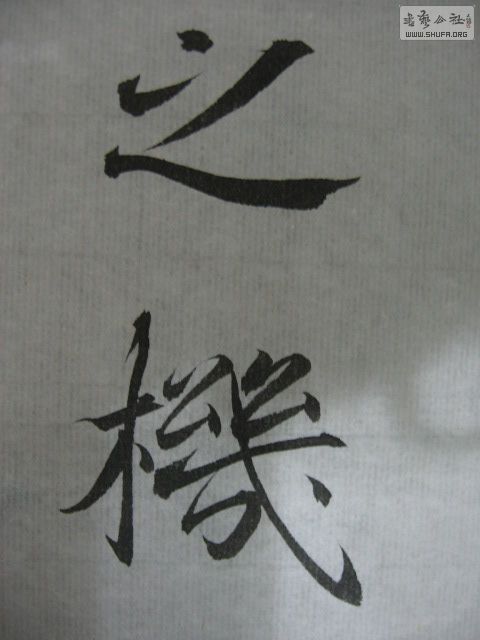 之機
書藝公社
WWW.SHUFA.ORG